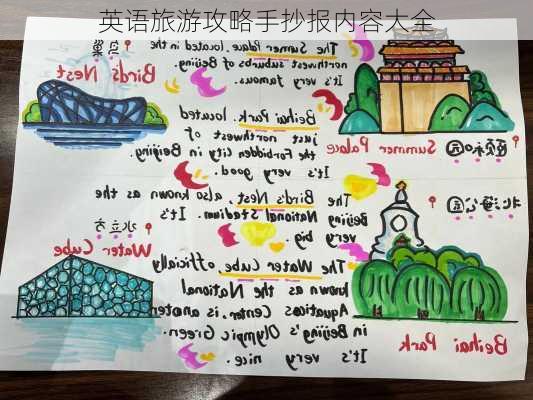 英语旅游攻略手抄报内容大全
鸟巢
Bird's Nest
The Summer Palace, located in the
northwest suburbs of Beijing.
It's very famous.
颐和园
Summer Palace
Beihai Park, located
just northwest of
the Forbidden City in Beijing.
It's very good.
The Bird's Nest, also known as the
Beijing National Stadium. It's
very big.
北海公园
Beihai Park
水立方
Water Cube
The Water Cube, officially
known as the National
Aquatics Center, is
in Beijing's Olympic Green.
It's very nice.